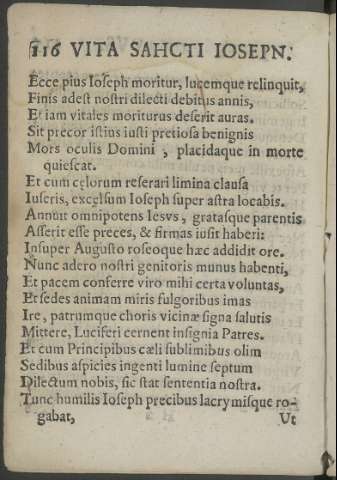 116 VITA SAHCTI IOSEPN.
Ecce pius Ioſeph moritur, lucemque relinquit,
Finis adeſt noſtri dilecti debitus annis,
Et iam vitales moriturus deſerit auras.
Sit precor iſtius iuſti pretioſa benignis
Mors oculis Domini, placidaque in morte
quieſcat.
Et cum cęlorum reſerari limina clauſa
Iuſeris, excelſum Ioſeph ſuper aſtra locabis.
Annuit omnipotens Iesvs, gratasque parentis
Aſſerit eſſe preces, & firmas iuſit haberi:
Inſuper Auguſto roſeoque hæc addidit ore.
Nunc adero noſtri genitoris munus habenti,
Et pacem conferre viro mihi certa voluntas,
Et ſedes animam miris fulgoribus imas
Ire, patrumque choris vicinæ ſigna ſalutis
Mittere, Luciferi cernent inſignia Patres.
Et cum Principibus cæli ſublimibus olim
Sedibus aſpicies ingenti lumine ſeptum
Dilectum nobis, ſic ſtat ſententia noſtra.
Tunc humilis Ioſeph precibus lacrymisque ro-
gabat, Ut